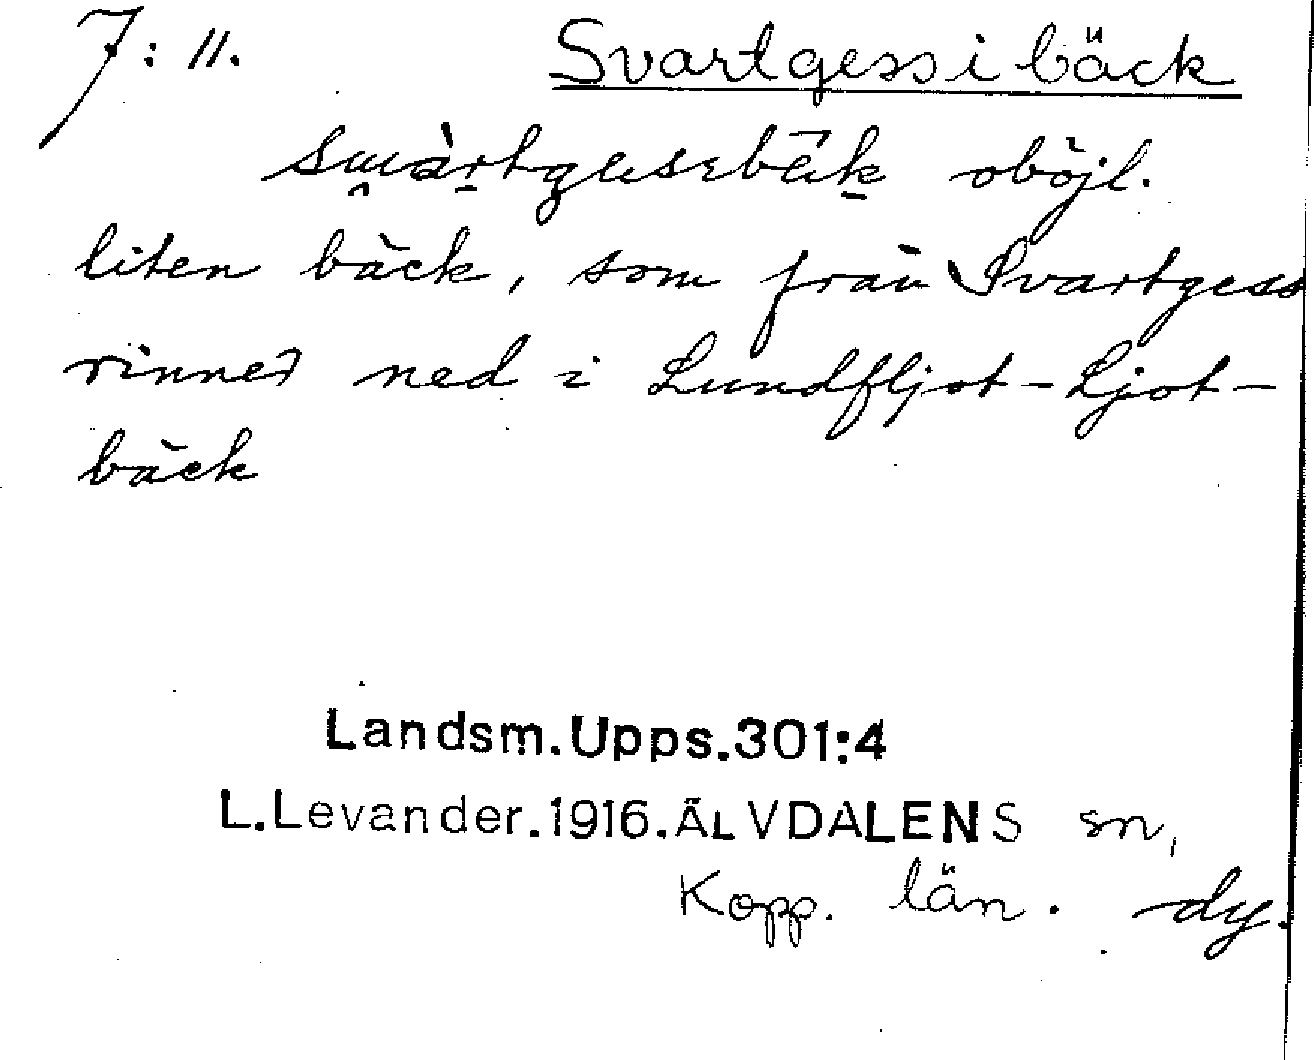 7:11.
Svartgessibäck
oböjl.
liten bäck, som från Svartgess
rinner ned i Lundfljot-Ljot-
bäck
Landsm.Upps.301:4
L.Levander.1916.ÄLVDALENS sn,
Kopp. län. dy.